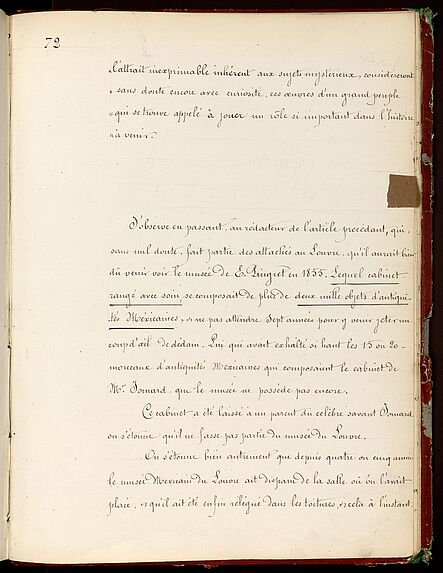 72
l'attrait inexprimable inhérent aux sujets mystérieux, considéreront
« sans doute encore avec curiosité, ces œuvres d'un grand peuple
« qui se trouve appelé à jouer un rôle si important dans l'histoire
« à venir.
J'observe en passant, au rédacteur de l'article précédant, qui,
sans nul doute, fait partie des attachés au Louvre, qu'il aurait bien
dû venir voir le musée de E. Pingret en 1855. Lequel cabinet
rangé avec soin se composait de plus de deux mille objets d'antiqui-
tés Mexicaines, et ne pas attendre Sept années pour y venir jeter un
coup d'œil de dédain. Lui qui avait exhalté si haut les 15 ou 20
morceaux d'antiquités Mexicaines qui composaient le cabinet de
Mr. Jomard, que le musée ne possède pas encore.
Ce cabinet a été laissé à un parent du célèbre savant Jomard
on s'étonne qu'il ne fasse pas partie du musée du Louvre.
On s'étonne bien autrement que depuis quatre ou cinq années
le musée Mexicain du Louvre ait disparu de la salle où on l'avait
placé, et qu'il ait été enfin relégué dans les toitures, et cela à l'instant